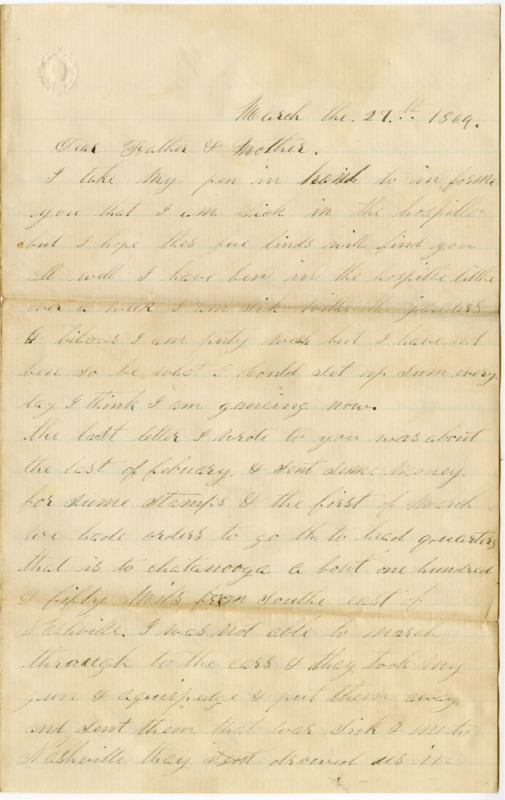 March the. 29.th 1864.
Dear Father & Mother.
I take my pen in hand to in forme
you that I am Sick in the hospitle
but I hope this fue linds will find you
all well I have ben in the hospitle little
over a week I am sick withe the janders
& bilous I am puty weak but I have not
ben so be what I Could Set up Sum every
day I think I am gaineing now.
The last letter I wrote to you was about
the last of febuary. & Sent Sume money
for Sume Stamps & the first of March
we hade orders to go th to head quarters
that is to chatanooga a bout one hundred
& fifty Mils from Southe east of
Nashville. I was not able to march
through to the cars & they took my
gun & aquipedge & put them away
and Sent them that was Sick & me to
Nashville thay drowed us in